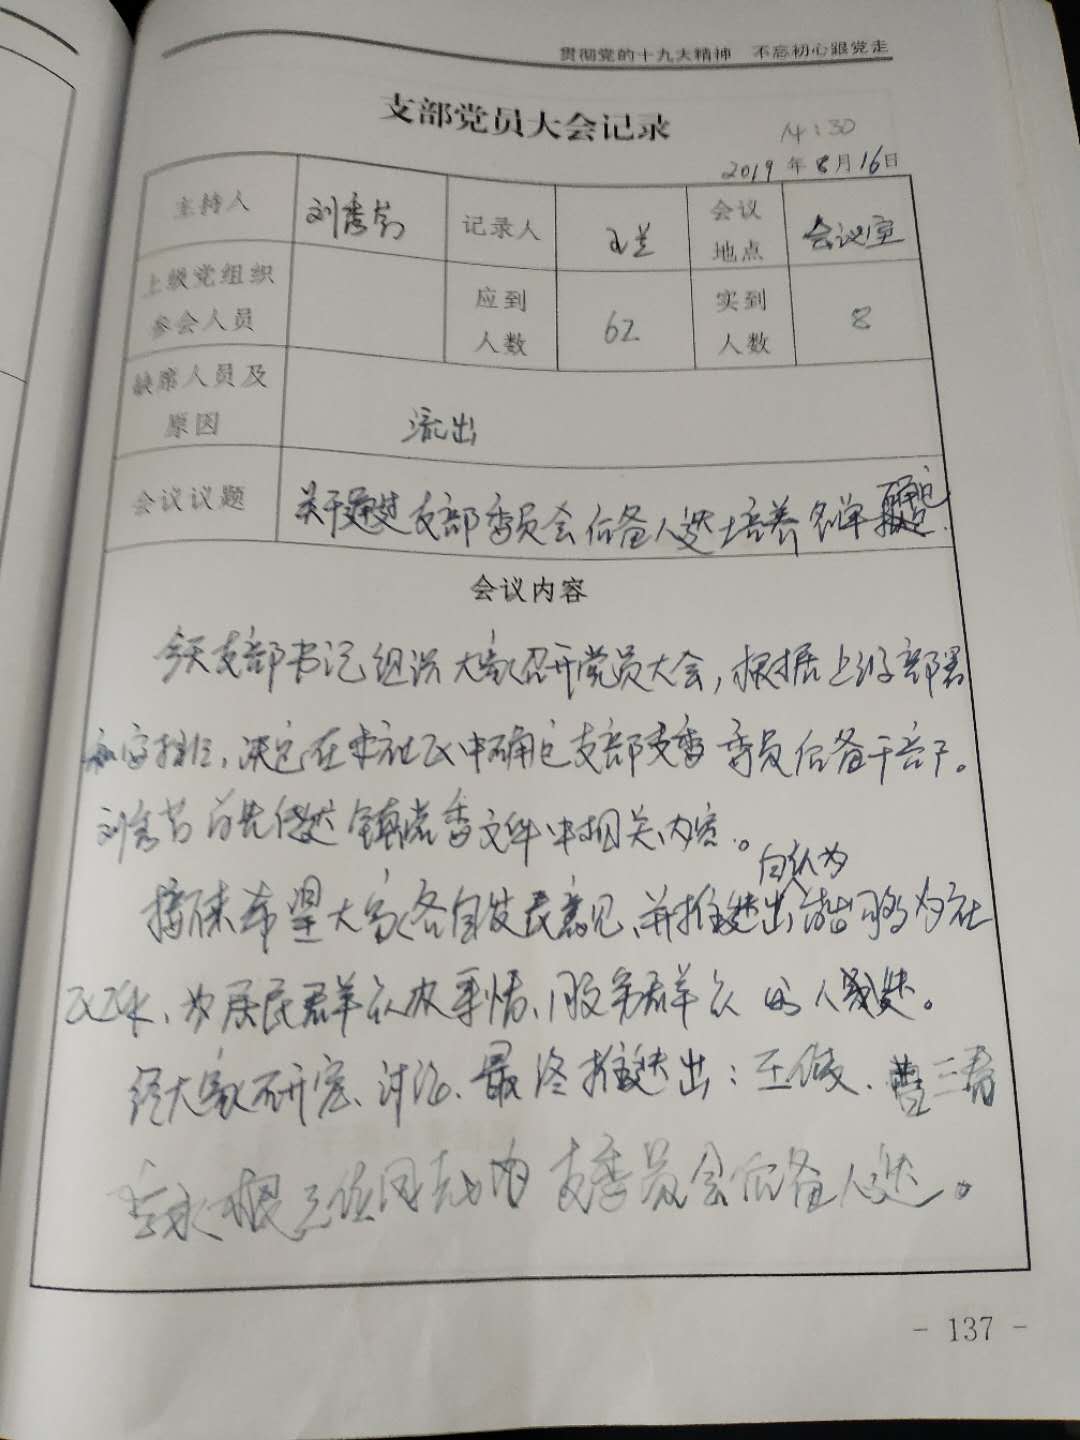 贯彻党的十九大精神 不忘初心跟党走
支部党员大会记录
14:30
2019年8月16日
主持人 刘秀 记录人 会议地点 会议室
上级党组织参会人员 应到人数 62 实到人数 8
缺席人员及原因 流出
会议议题 关于通过支部委员会后备人选培养名单确定.
会议内容
今天支部书记组织大家召开党员大会,根据上级部署
和安排,决定在本社区中确定支部支委委员后备干部。
刘秀 首先传达镇党委文件中相关内容。
自认为
接下来希望大家各自发表意见、并推选出 能够为社
区、为居民群众办事情、服务群众的人选。
经大家研究、讨论、最终推选出:王俊、曹三
李永根三位同志为支委员会后备人选。
- 137 -